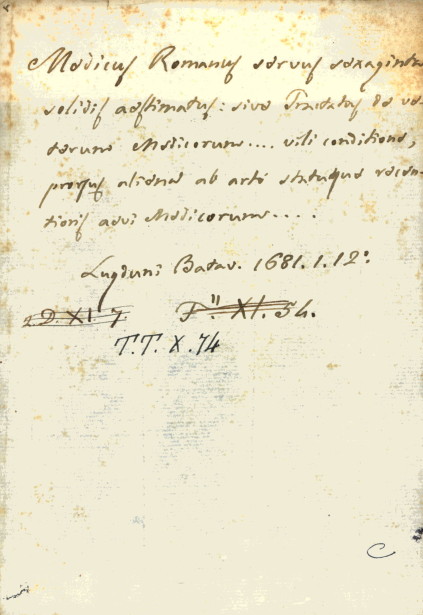 Medicus Romanus servus sexaginta
solidis aestimatus: sive Tractatus de ve-
terum Medicorum .... vili conditione,
prorsus aliena ab arte statuque recen-
tioris aevi Medicorum ....
Lugduni Batav. 1681. 1. 12º.
2 D. XI 7 F". XI. 54.
T.T. X. 74
C